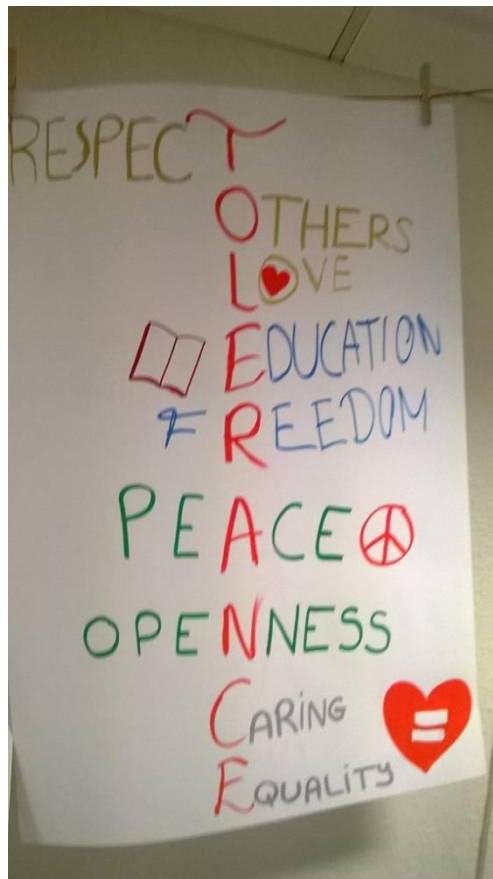 RESPECT
OTHERS
LOVE
EDUCATION
FREEDOM
PEACE
OPENNESS
CARiNG
EQUALiTY